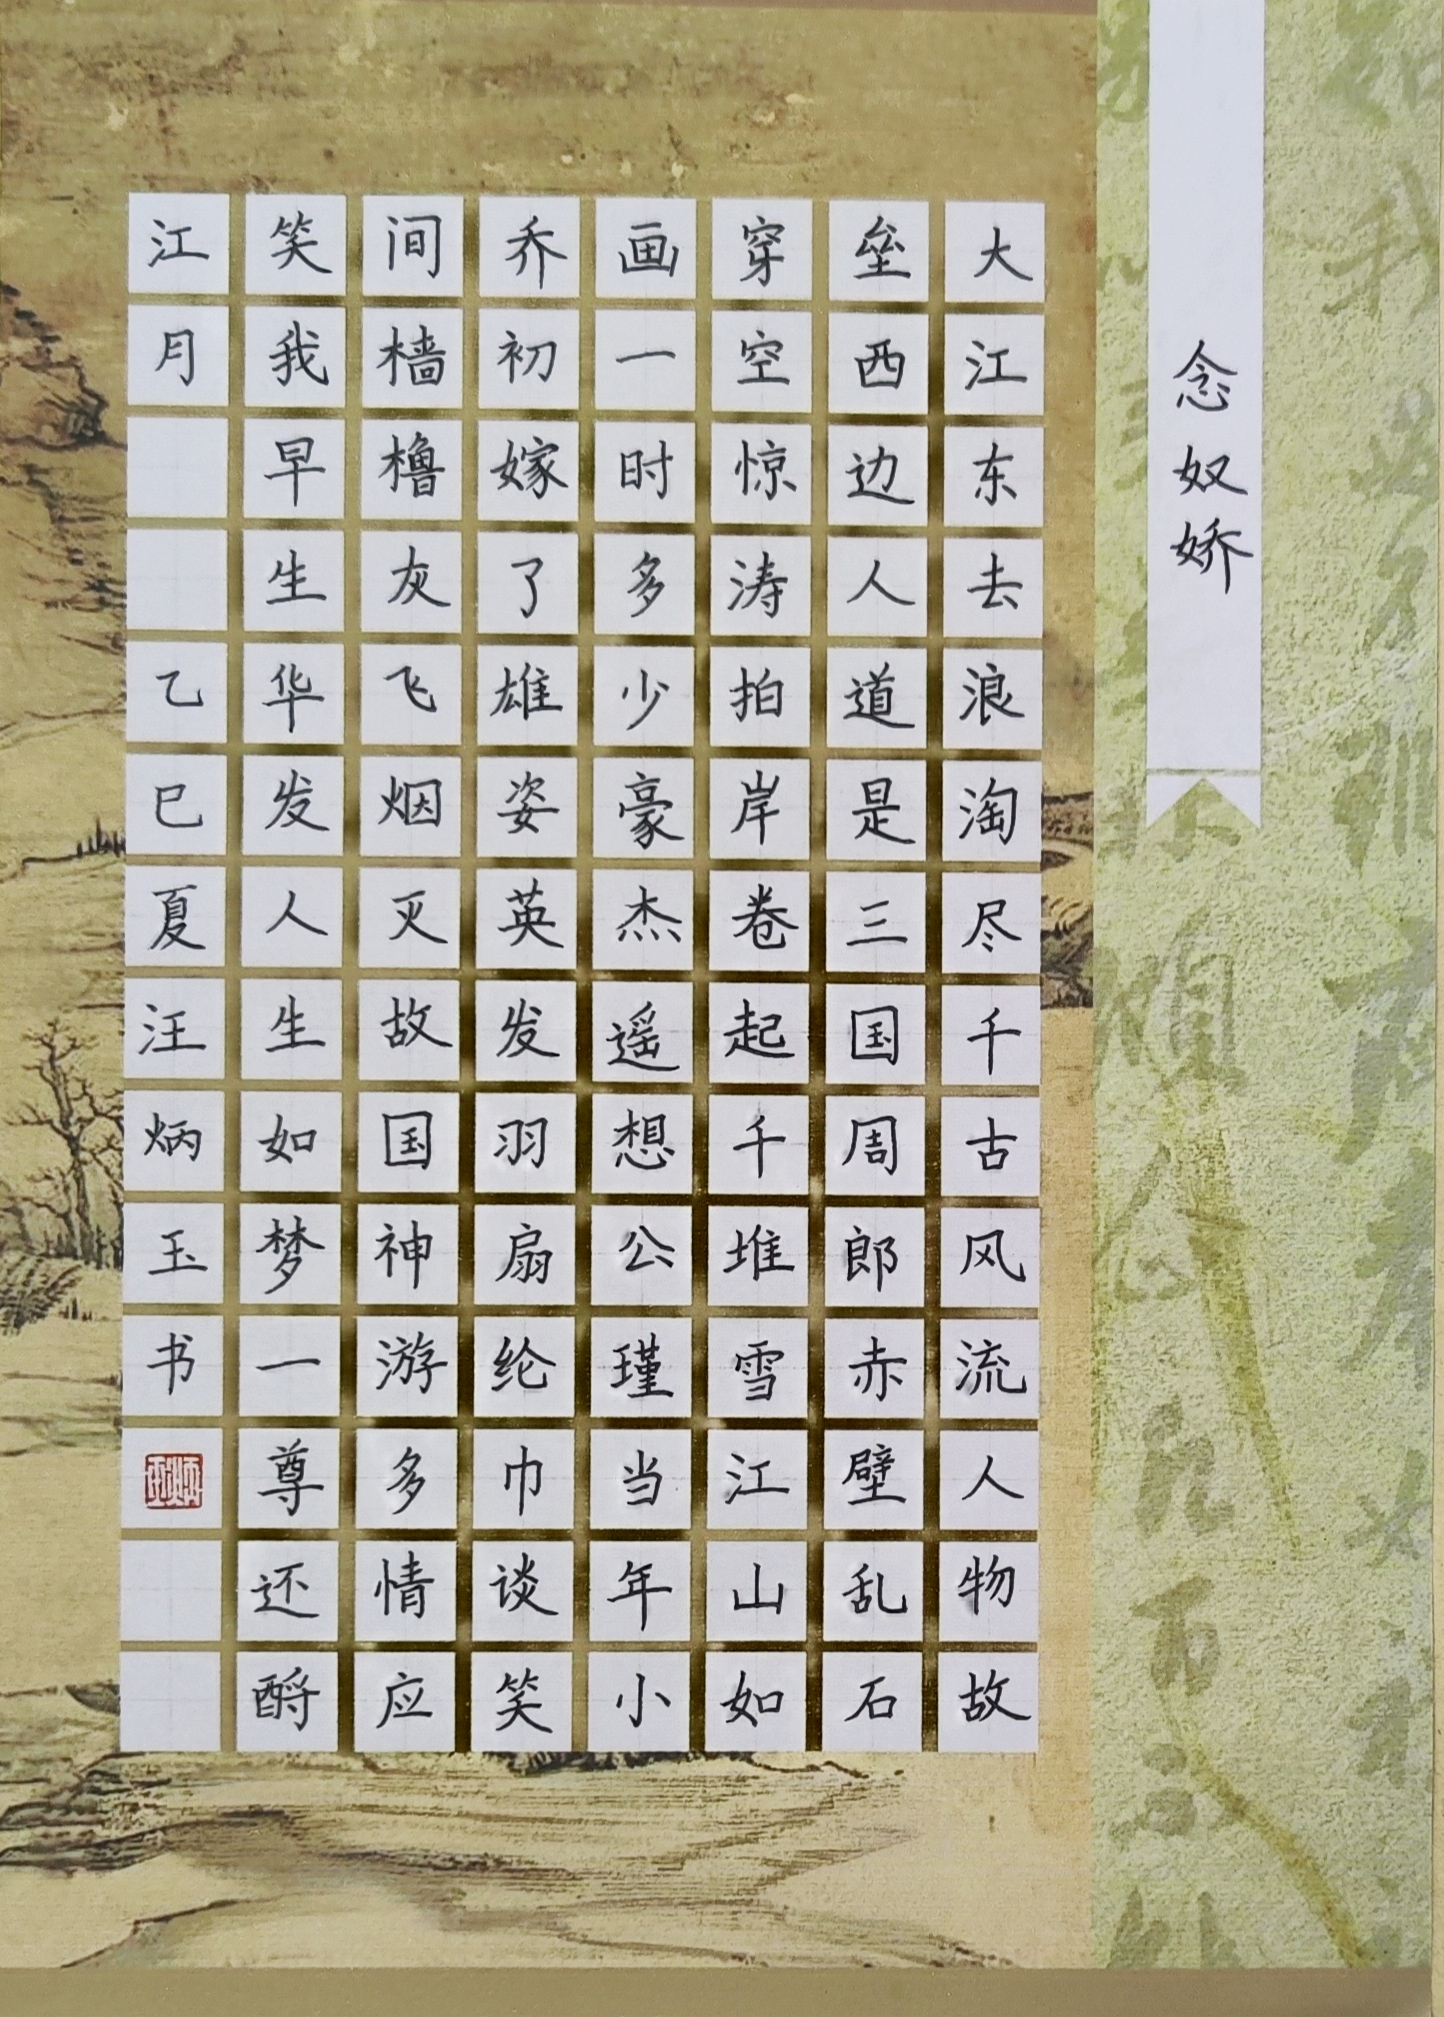 念奴娇
大江东去浪淘尽千古风流人物故
垒西边人道是三国周郎赤壁乱石
穿空惊涛拍岸卷起千堆雪江山如
画一时多少豪杰遥想公瑾当年小
乔初嫁了雄姿英发羽扇纶巾谈笑
间樯橹灰飞烟灭故国神游多情应
笑我早生华发人生如梦一尊还酹
江月 乙巳夏汪炳玉书